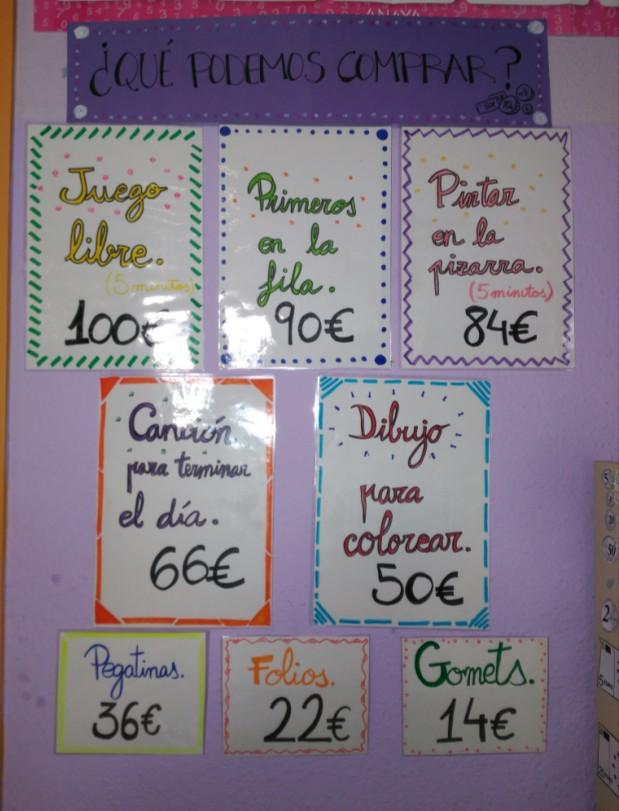 ANAYA
¿QUÉ PODEMOS COMPRAR?
Juego
libre.
(5 minutos)
100€
Primeros
en la
fila.
90€
Pintar
en la
pizarra.
(5 minutos)
84€
Canción
para terminar
el día.
66€
Dibujo
para
colorear.
50€
Pegatinas.
36€
Folios.
22€
Gomets.
14€